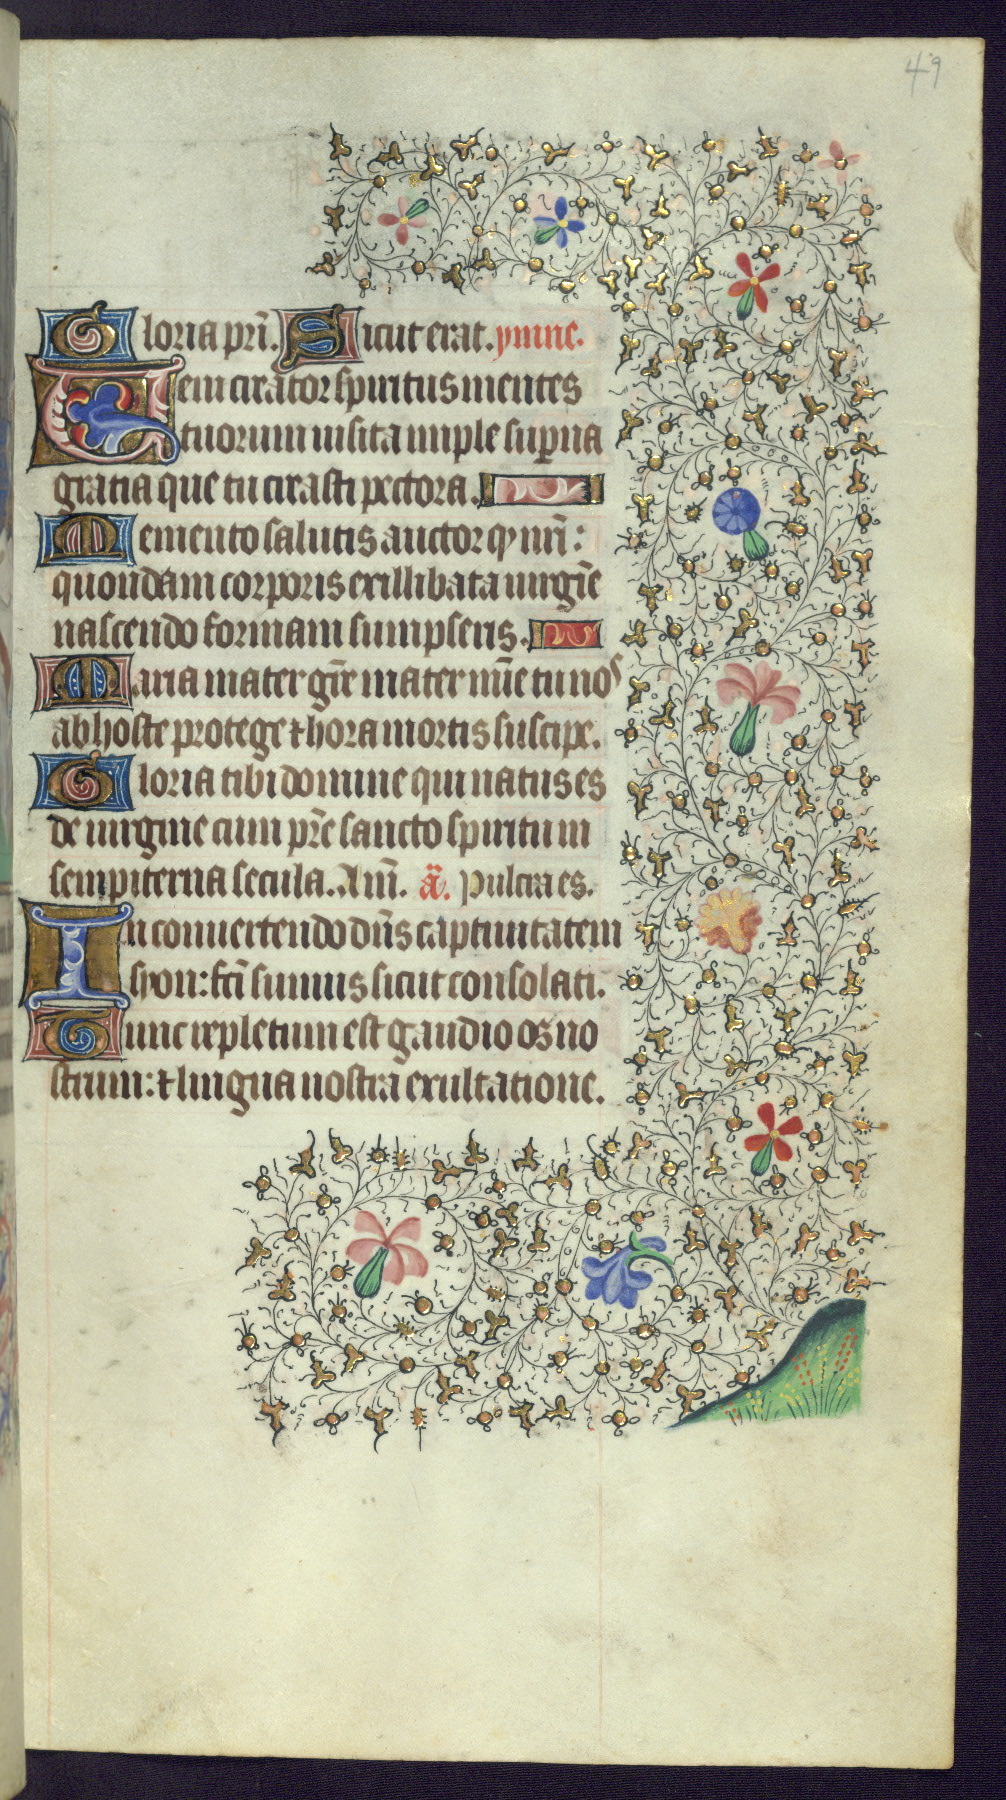 49
Gloria pr̄i. Sicut erat. ymne.
Ueni creator spiritus mentes
tuorum uisita imple sup̄na
gratia que tu creasti pectora.
Memento salutis auctor qꝫ nr̄i:
quondam corporis ex illibata uirgīe
nascendo formam sumpseris.
Maria mater gr̄e mater mīe tu nos
ab hoste protege ⁊ hora mortis suscipe.
Gloria tibi domine qui natus es
de uirgine cum pr̄e sancto spiritu in
sempiterna secula. Am̄. ā. Pulcra es.
In conuertendo dn̄s captiuitatem
syon: fc̄i sumus sicut consolati.
Tunc repletum est gaudio os no
strum: ⁊ lingua nostra exultatione.